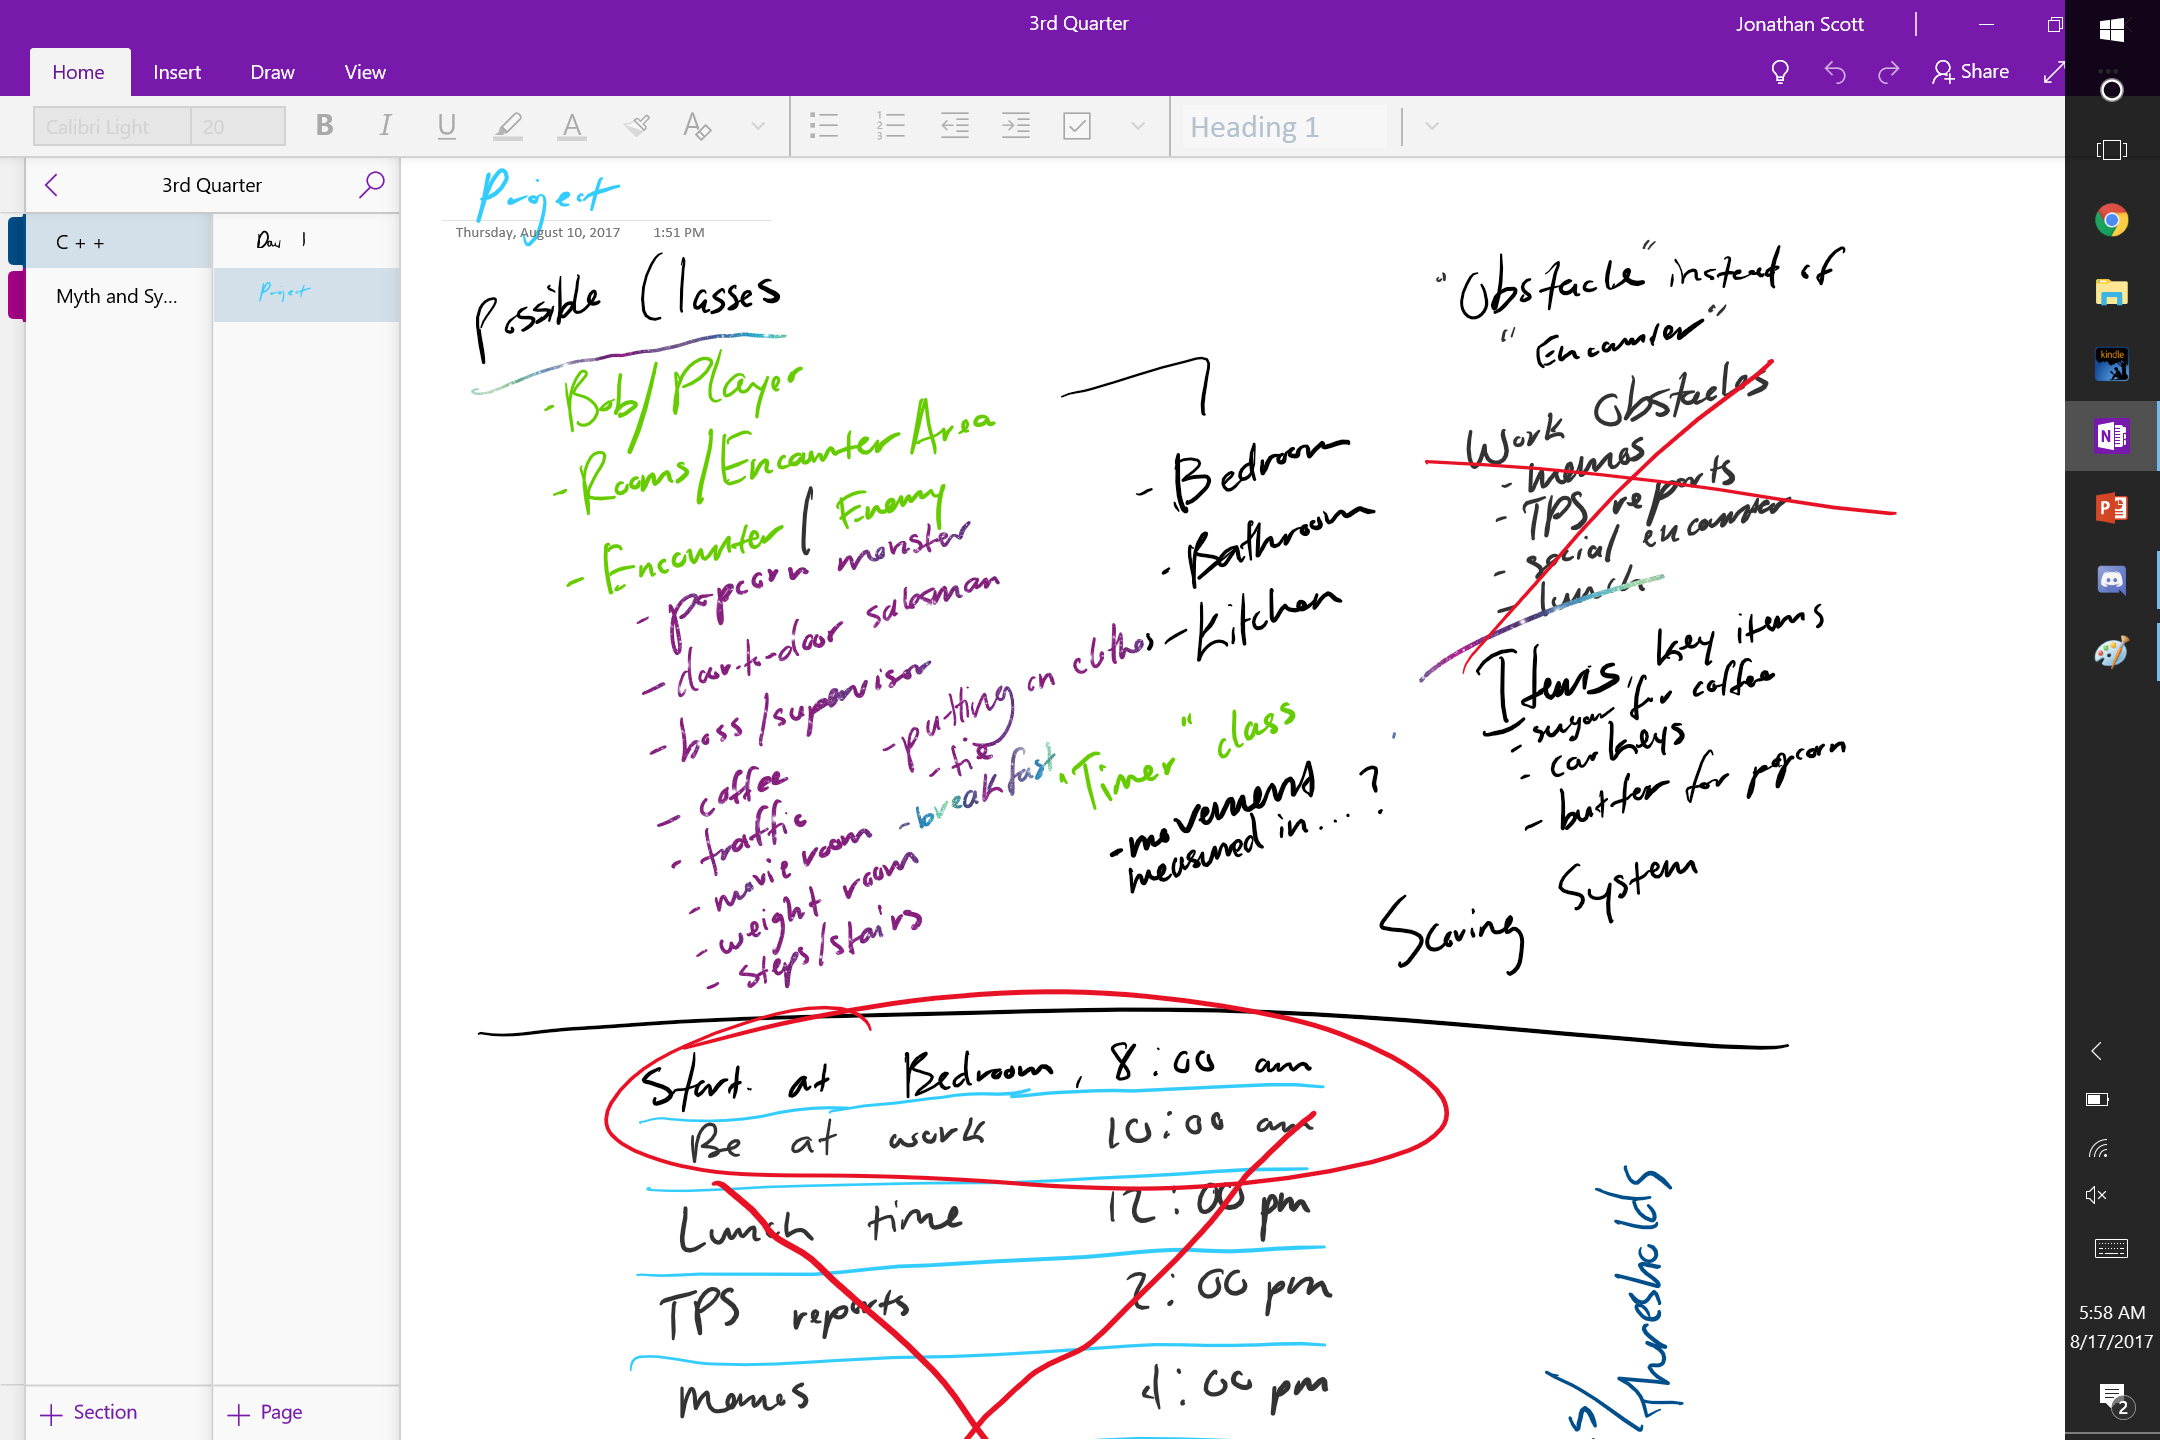 3rd Quarter
Jonathan Scott
Home
Insert
Draw
View
Share
Calibri Light
20
B
I
U
A
A
Heading 1
3rd Quarter
C + +
Myth and Sy...
Day 1
Project
Project
Thursday, August 10, 2017
1:51 PM
Possible Classes
- Bob/Player
- Rooms/Encounter Area
- Encounter / Enemy
- popcorn monster
- door-to-door salesman
- boss/supervisor
- coffee
- traffic
- movie room
- weight room
- steps/stairs
- putting on clothes
- tie
- breakfast
- Bedroom
- Bathroom
- Kitchen
"Timer" class
- movement
measured in...?
"Obstacle" instead of
"Encounter"
Work Obstacles
- memos
- TPS reports
- social encounter
- lunch
Items, key items
- sugar for coffee
- car keys
- butter for popcorn
Scoring System
Start at Bedroom, 8:00 am
Be at work 10:00 am
Lunch time 12:00 pm
TPS reports 2:00 pm
Memos 4:00 pm
Thresholds
+ Section
+ Page
kindle
N
P
5:58 AM
8/17/2017
2